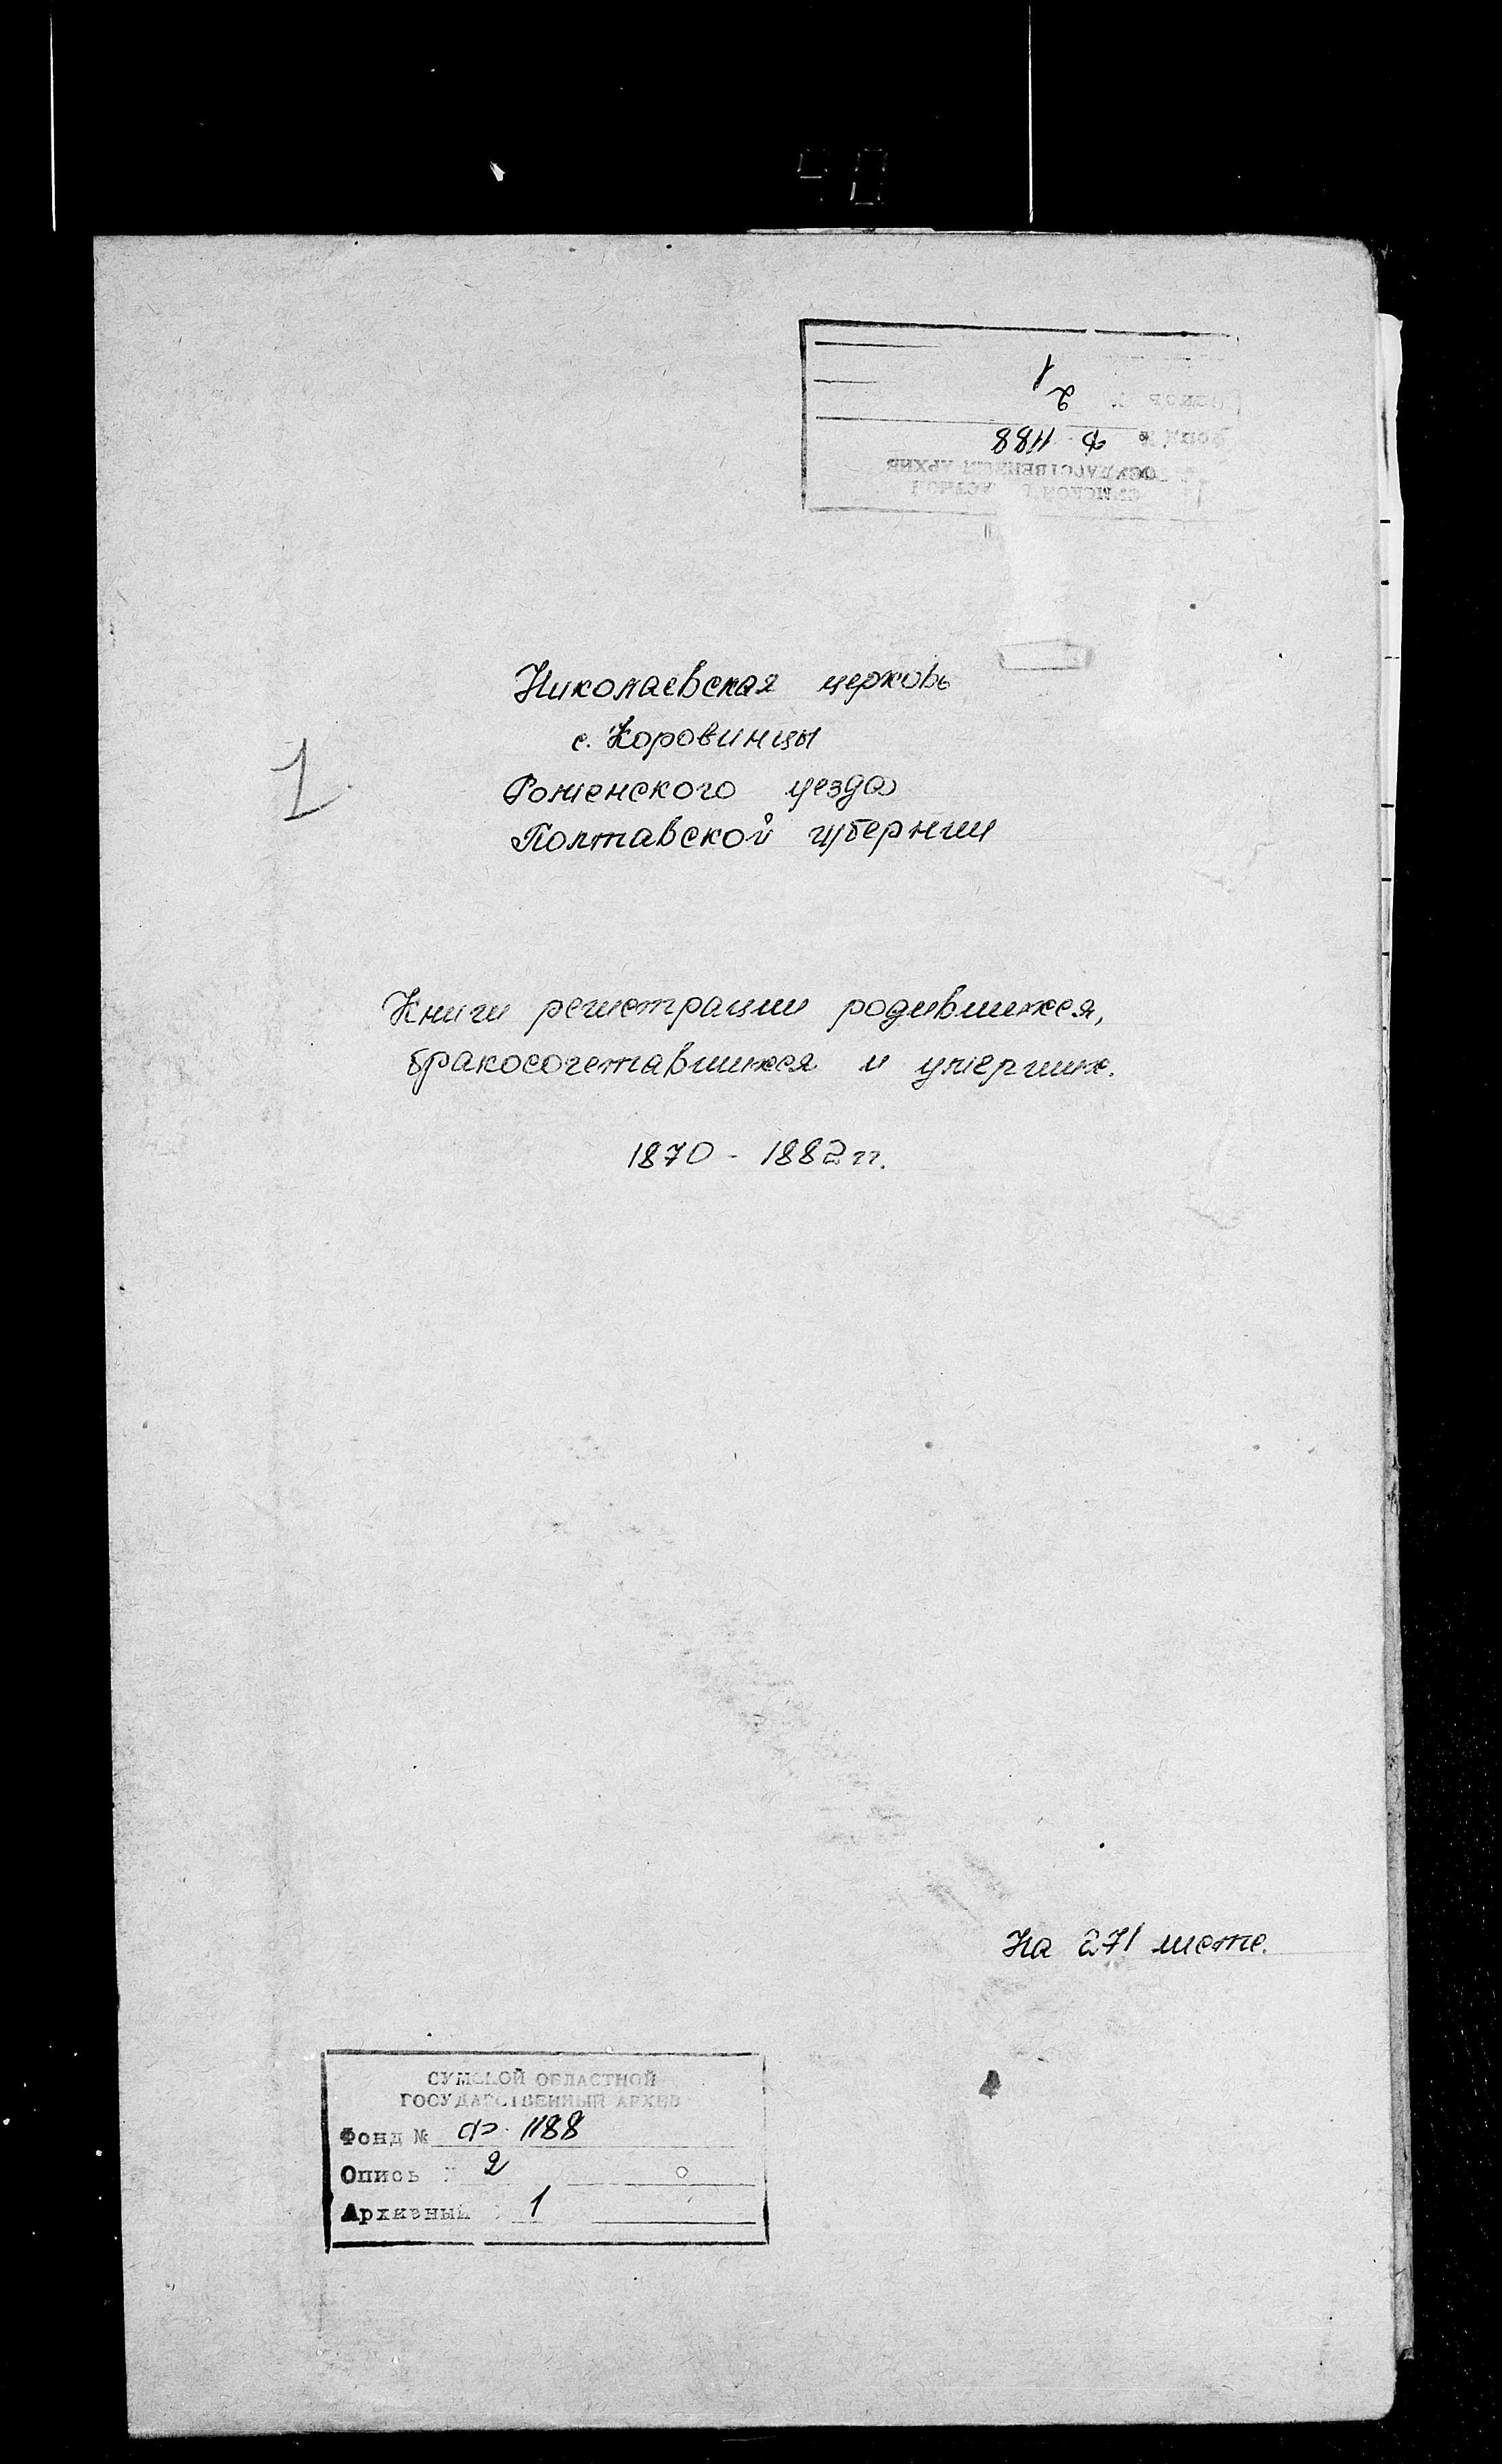 40
1
2
Ф. 1188
Николаевская церковь
с. Коровинцы
1
Роменского уезда
Полтавской губернии
Книги регистрации родившихся,
бракосочетавшихся и умерших.
1870 - 1882 гг.
На 271 листе.
СУМСКОЙ ОБЛАСТНОЙ
ГОСУДАРСТВЕННЫЙ АРХИВ
Фонд № Ф. 1188
Опись 2
Архивный 1